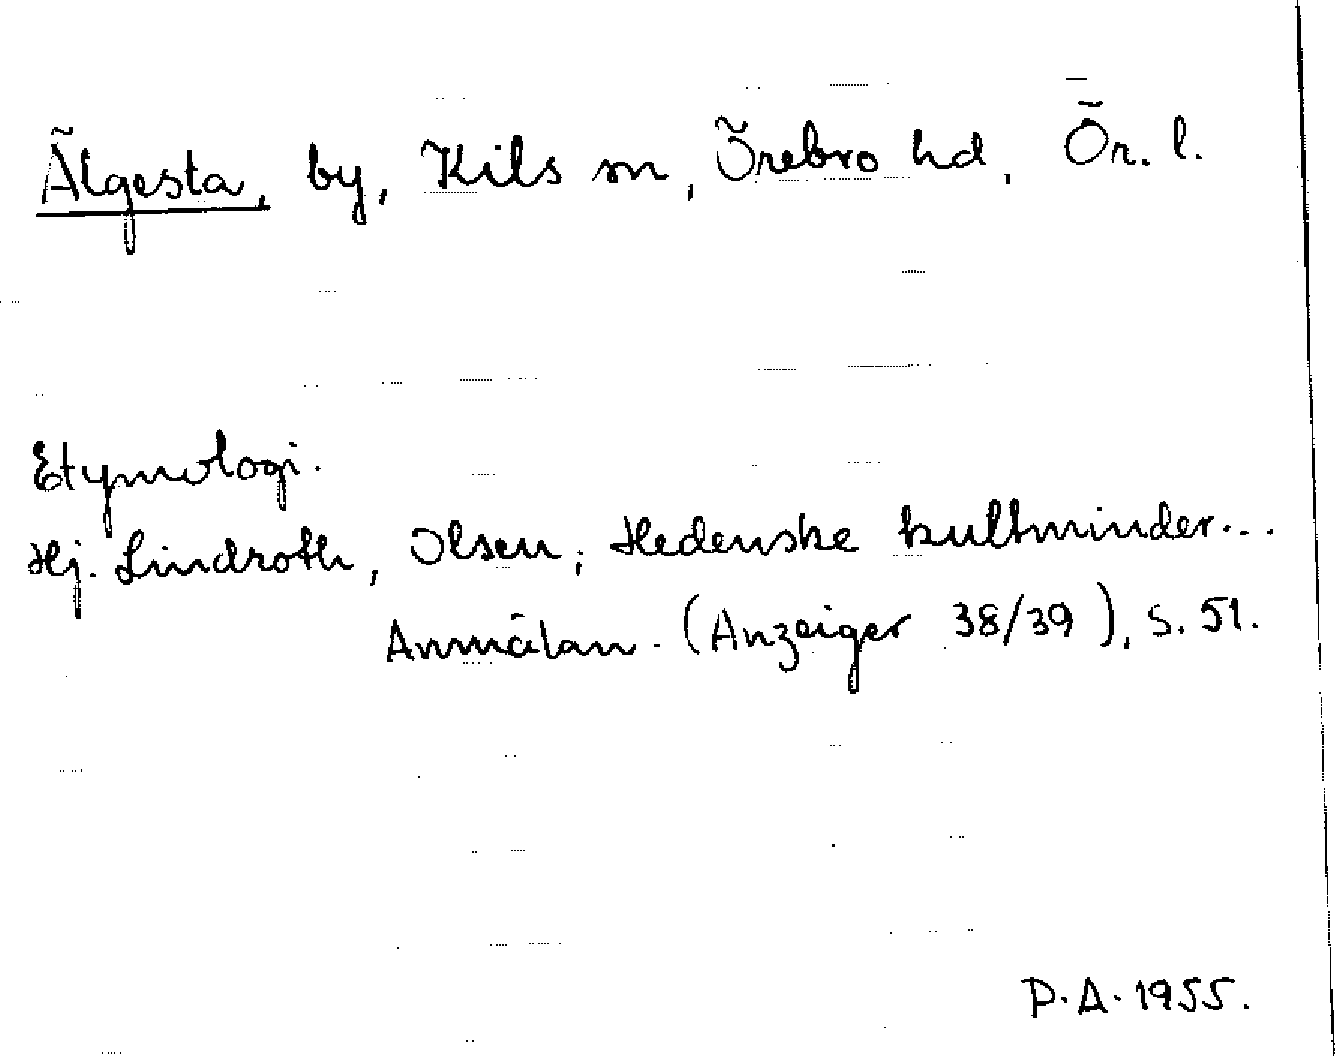 Älgesta, by, Kils sn, Örebro hd, Ör. l.
Etymologi.
Hj. Lindroth, Olsen, Hedenske kultminder...
Anmälan. (Anzeiger 38/39), s. 51.
P.A. 1955.